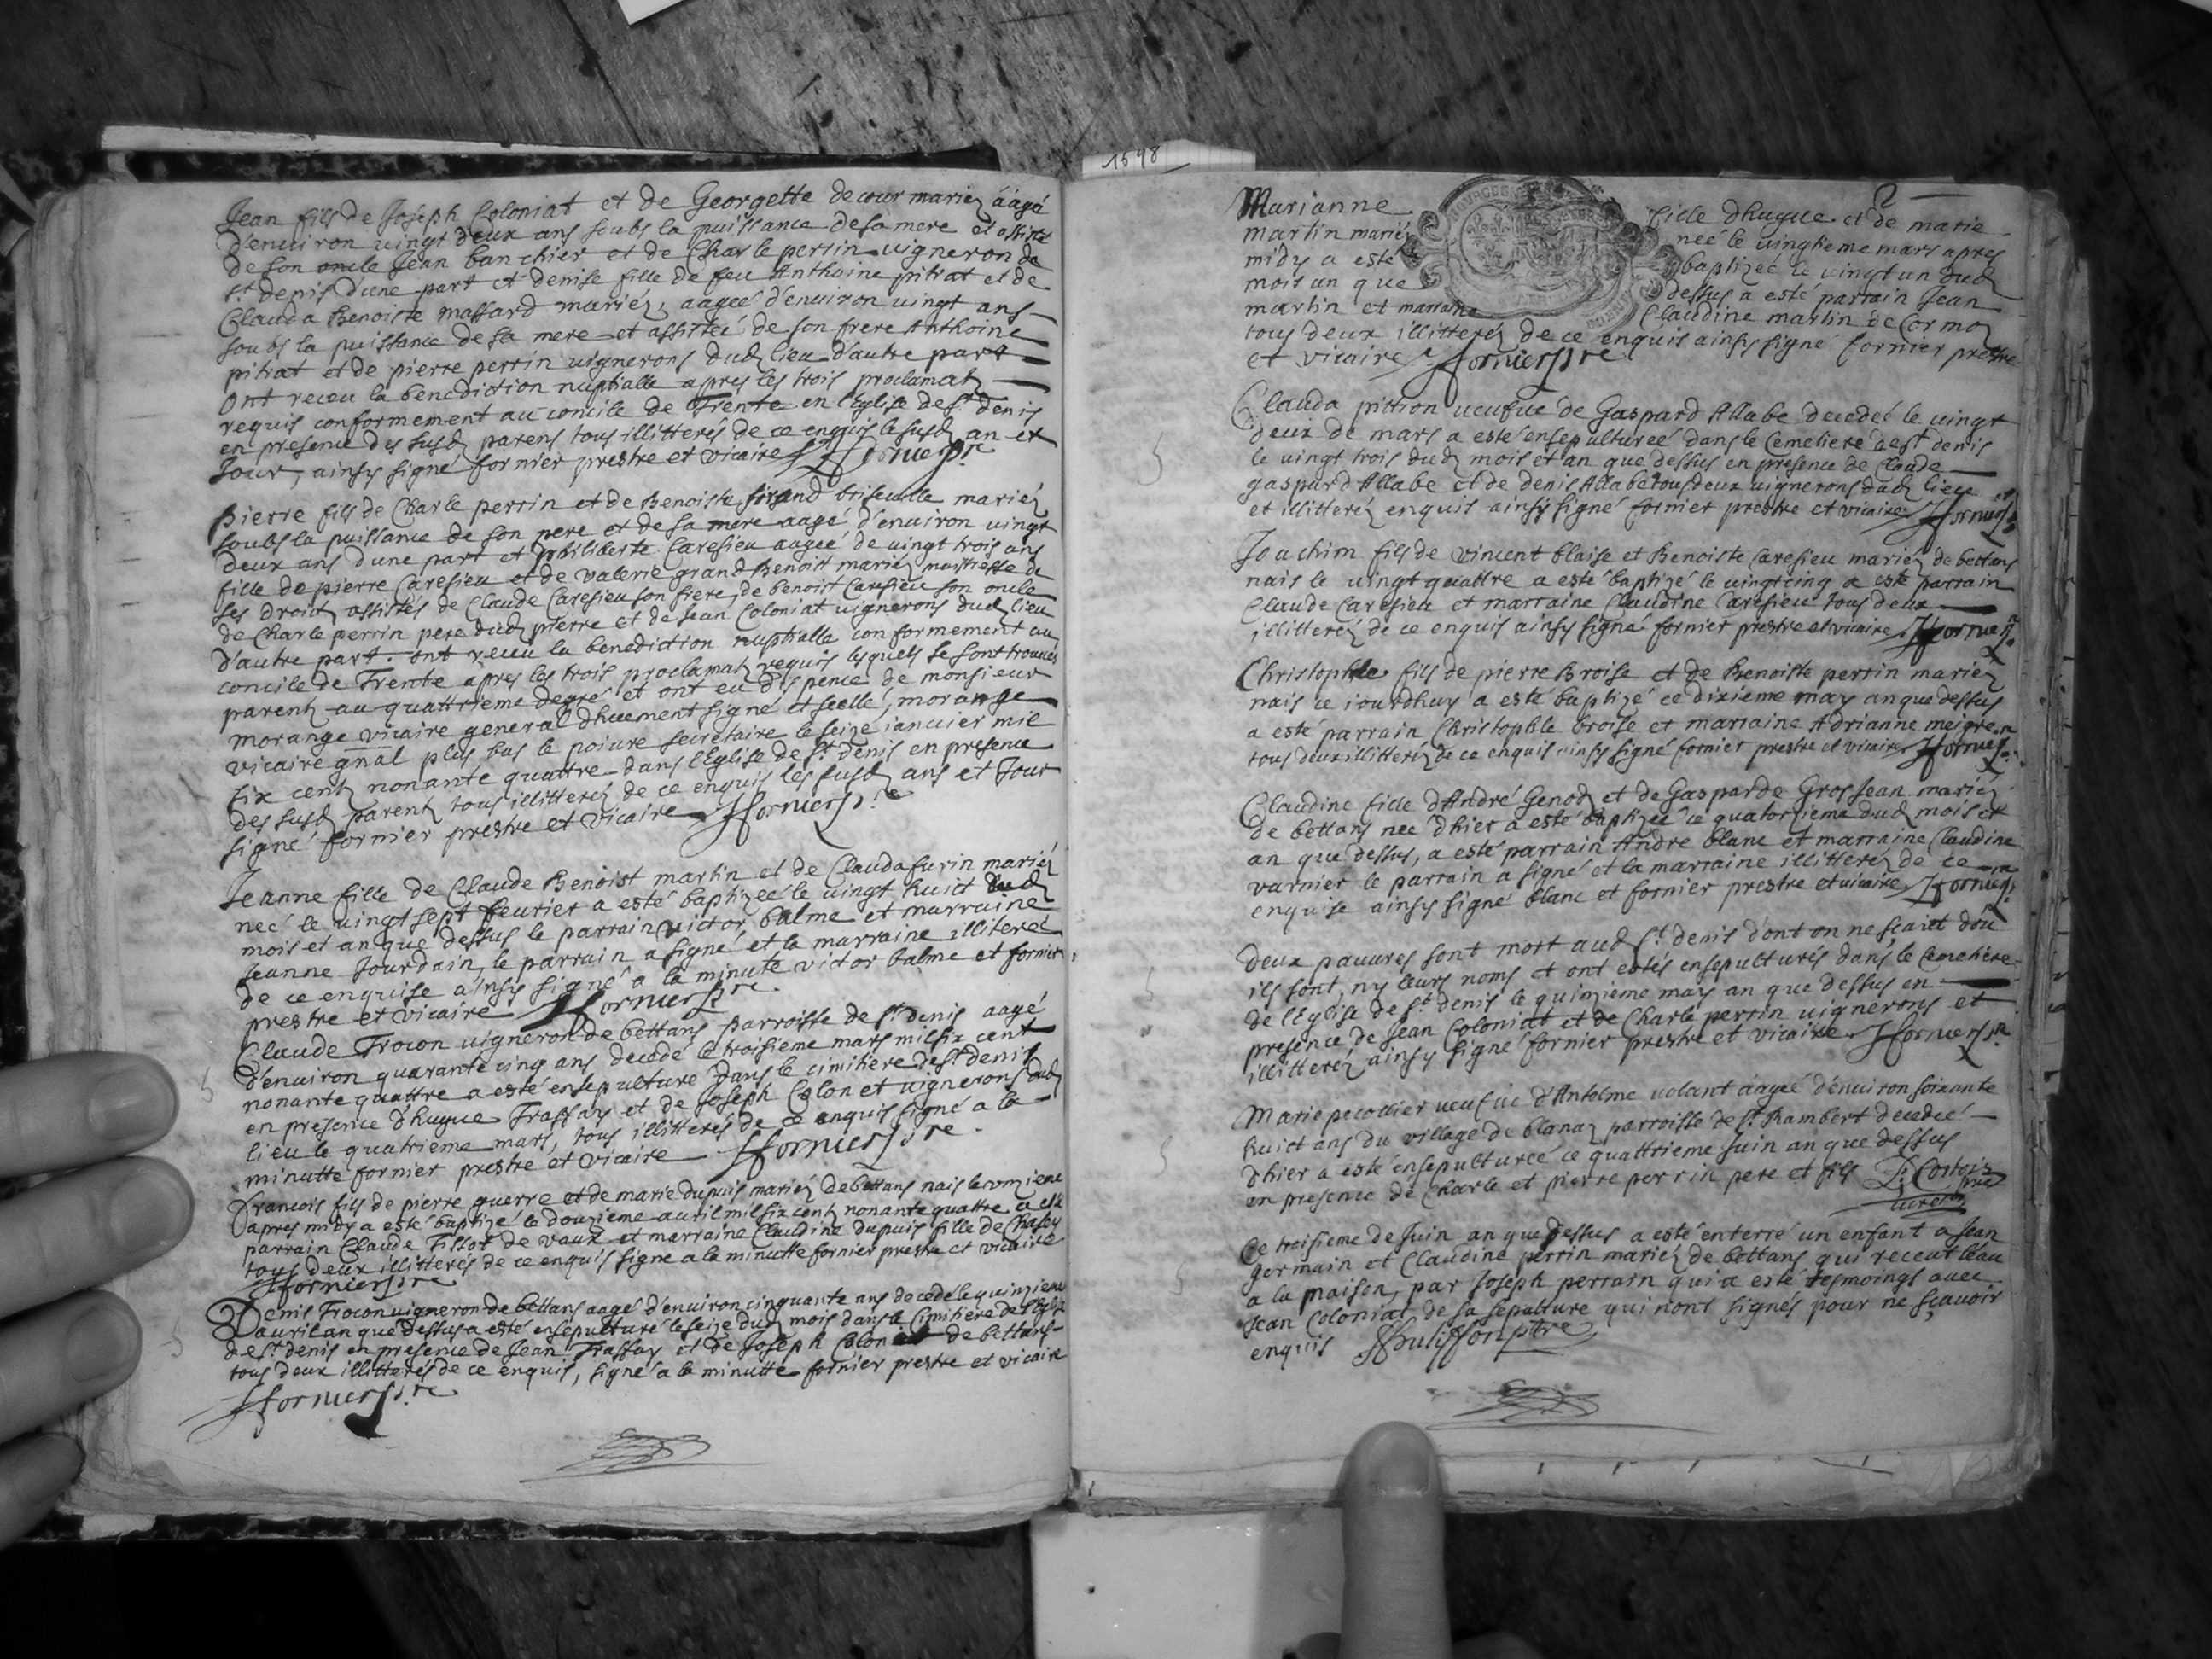 Jean fils de Joseph Coloniat et de Georgette decour mariez aagé
d'enuiron uingt deux ans soubs la puissance de sa mere et assisté
de son oncle Jean banchier et de Charle perrin uigneron de
st denis d'une part et denise fille de feu Anthoine pitrat et de
Clauda Benoiste massard mariéz, aagéé d'enuiron uingt ans
soubs la puissance de sa mere et assistéé de son frere Anthoine
pitrat et de pierre perrin uignerons dudz lieu d'autre part
Ont receu la benediction nuptialle apres les trois proclamatz
requis conformement au concile de Trente en l'Eglise de st denis
en presence des susdz parens tous illitterés de ce enquis le susdz an et
Jour, ainsy signé fornier prestre et vicaire Jfornier pre
Pierre fils de Charle perrin et de Benoiste briseuille mariéz
soubs la puissance de son pere et de sa mere aagé d'enuiron uingt
deux ans d'une part et philiberte Caresieu aagéé de uingt trois ans
fille de pierre Caresieu et de valerie grand Benoist mariéz maistresse de
ses droitz assistés de Claude Caresieu son frere, de benoist Caresieu son oncle
de Charle perrin pere dudz pierre et de Jean Coloniat uignerons dudz lieu
d'autre part. ont receu la benediction nuptialle conformement au
concile de Trente apres les trois proclamatz requis lesquels se sont trouués
parentz au quattrieme degré et ont eu dispence de monsieur
morange vicaire general dhuement signé et scellé, morange
vicaire gnal plus bas le poiure secretaire le seize ianuier mil
six centz nonante quattre dans l'Eglise de st denis en presence
des susdz parentz tous illitteréz de ce enquis les susdz ans et Jour
signé fornier prestre et vicaire Jfornier pre
Jeanne fille de Claude Benoist martin et de Clauda furin mariéz
neé le uingt sept feurier a esté baptizéé le uingt huict dudz
mois et an que dessus le parrain victor balme et marraine
Jeanne Jourdain, le parrain a signé et la marraine illitereé
de ce enquise ainsy signé a la minute victor balme et fornier
prestre et vicaire Jfornier pre
Claude Trocon uigneron de bettans parroisse de st denis aagé
d'enuiron quarante cinq ans decedé le troisieme mars mil six cent
nonante quattre a esté ensepulturé dans le cimitiere de st denis
en presence d'hugue Trassay et de Joseph Colon et uignerons dudz
lieu le quatrieme mars, tous illitterés de ce enquis signé a la
minutte fornier prestre et vicaire Jfornier pre
Francois fils de pierre guerre et de marie dupuis mariéz de bettans nais le onzieme
apres midy a esté baptizé le douzieme auril mil six centz nonante quattre a esté
parrain Claude Tissot de vaux et marraine Claudine dupuis fille de
tous deux illitterés de ce enquis signé a la minutte fornier prestre et vicaire
Jfornier pre
Denis Trocon uigneron de bettans aagé d'enuiron cinquante ans decedé le quinzieme
auril an que dessus a esté ensepulturé le seize dudz mois dans le Cimitiere de l'Eglise
de st denis en presence de Jean Trassay et de Joseph Colon de bettans
tous deux illitterés de ce enquis, signé a la minutte fornier prestre et vicaire
Jfornier pre
1698
2
Marianne fille d'hugue et de marie
martin mariéz neé le uingtieme mars apres
midy a esté baptizeé le uingt un dudz
mois an que dessus a esté parrain Jean
martin et marraine Claudine martin de Cormoz
tous deux illitteréz de ce enquis ainsy signé fornier prestre
et vicaire Jfornier pre
Clauda pittion ueufue de Gaspard Allabe decedeé le uingt
deux de mars a esté ensepultureé dans le Cemetiere de st denis
le uingt trois dudz mois et an que dessus en presence de Claude
gaspard Allabe et de denis Allabe tous deux uignerons dudz lieu
et illitteréz enquis ainsy signé fornier prestre et vicaire Jfornier pre
Joachim fils de vincent blaise et Benoiste Caresieu mariéz de bettans
nais le uingt quattre a esté baptizé le uingt cinq a esté parrain
Claude Caresieu et marraine Claudine Caresieu tous deux
illitteréz de ce enquis ainsy signé fornier prestre et vicaire Jfornier pre
Christophle fils de pierre Broise et de Benoiste perrin mariéz
nais ce iourdhuy a esté baptizé ce dixieme may an que dessus
a esté parrain Christophle broise et marraine Adrianne meigre
tous deux illitteréz de ce enquis ainsy signé fornier prestre et vicaire Jfornier pre
Claudine fille d'André Genodz et de Gasparde GrosJean mariéz
de bettans neé d'hier a esté baptizeé ce quatorzieme dudz mois et
an que dessus, a esté parrain André blanc et marraine Claudine
varnier le parrain a signé et la marraine illitteréz de ce
enquise ainsy signé blanc et fornier prestre et vicaire Jfornier pre
Deux pauures sont mort audz st denis d'ont on ne sçait d'ou
ils sont, ny leurs noms et ont estés ensepulturés dans le Cemetiere
de l'Eglise de st denis le quinzieme may an que dessus en
presence de Jean Coloniat et de Charle perrin uignerons et
illitteréz ainsy signé fornier prestre et vicaire Jfornier pre
Marie pecollier ueufue d'Antelme uolant aageé d'enuiron soixante
huict ans du village de blanaz parroisse de st Rambert decedeé
d'hier a esté ensepultureé ce quattrieme Juin an que dessus
en presence de Charle et pierre perrin pere et fils
Ce troisieme de Juin an que dessus a esté enterré un enfant a Jean
germain et Claudine perrin mariéz de bettans qui receut l'eau
a la maison, par Joseph perrain qui a esté tesmoings auec
Jean Coloniat de sa sepulture qui n'ont signés pour ne sçauoir
enquis